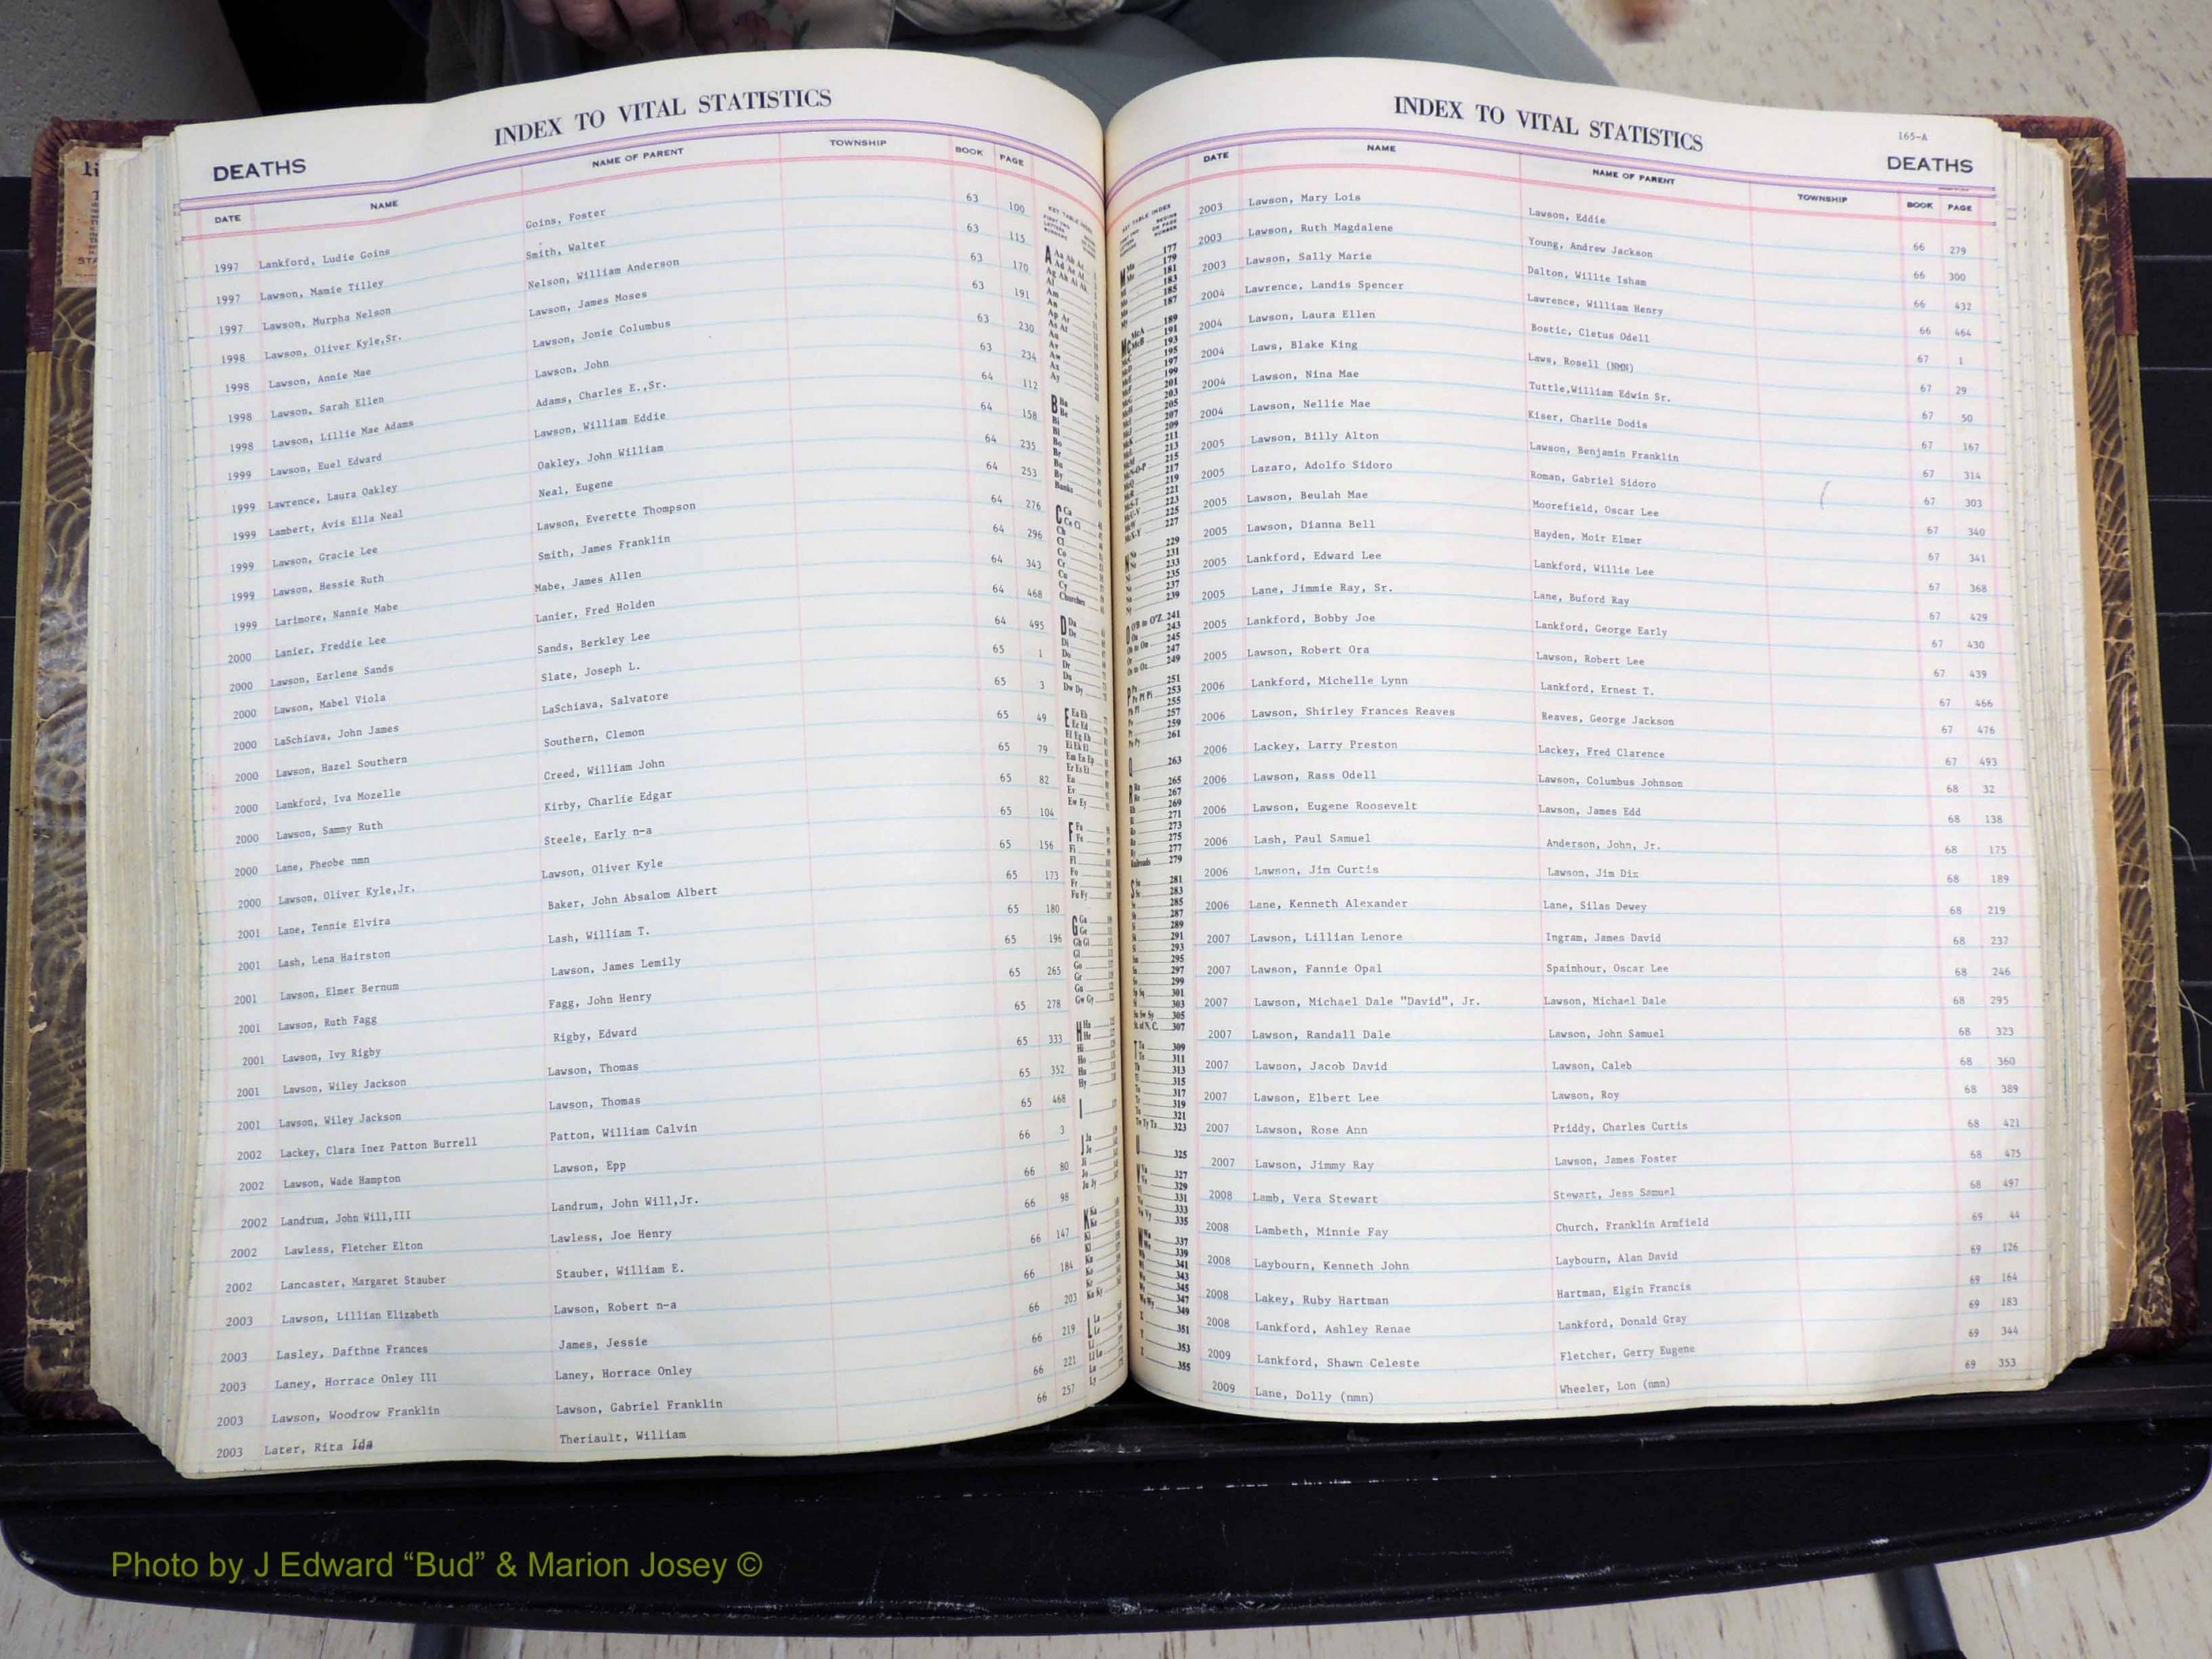 INDEX TO VITAL STATISTICS
DEATHS
DATE NAME NAME OF PARENT TOWNSHIP BOOK PAGE
1997 Lankford, Ludie Goins Goins, Foster 63 100
1997 Lawson, Mamie Tilley Smith, Walter 63 115
1997 Lawson, Murpha Nelson Nelson, William Anderson 63 170
1998 Lawson, Oliver Kyle,Sr. Lawson, James Moses 63 191
1998 Lawson, Annie Mae Lawson, Jonie Columbus 63 230
1998 Lawson, Sarah Ellen Lawson, John 63 234
1998 Lawson, Lillie Mae Adams Adams, Charles E.,Sr. 64 112
1999 Lawson, Euel Edward Lawson, William Eddie 64 158
1999 Lawrence, Laura Oakley Oakley, John William 64 235
1999 Lambert, Avis Ella Neal Neal, Eugene 64 253
1999 Lawson, Gracie Lee Lawson, Everette Thompson 64 276
1999 Lawson, Hessie Ruth Smith, James Franklin 64 296
1999 Larimore, Nannie Mabe Mabe, James Allen 64 343
2000 Lanier, Freddie Lee Lanier, Fred Holden 64 468
2000 Lawson, Earlene Sands Sands, Berkley Lee 64 495
2000 Lawson, Mabel Viola Slate, Joseph L. 65 1
2000 LaSchiava, John James LaSchiava, Salvatore 65 3
2000 Lawson, Hazel Southern Southern, Clemon 65 49
2000 Lankford, Iva Mozelle Creed, William John 65 79
2000 Lawson, Sammy Ruth Kirby, Charlie Edgar 65 82
2000 Lane, Pheobe nmn Steele, Early n-a 65 104
2000 Lawson, Oliver Kyle,Jr. Lawson, Oliver Kyle 65 156
2001 Lane, Tennie Elvira Baker, John Absalom Albert 65 173
2001 Lash, Lena Hairston Lash, William T. 65 180
2001 Lawson, Elmer Bernum Lawson, James Lemily 65 196
2001 Lawson, Ruth Fagg Fagg, John Henry 65 265
2001 Lawson, Ivy Rigby Rigby, Edward 65 278
2001 Lawson, Wiley Jackson Lawson, Thomas 65 333
2001 Lawson, Wiley Jackson Lawson, Thomas 65 352
2002 Lackey, Clara Inez Patton Burrell Patton, William Calvin 65 468
2002 Lawson, Wade Hampton Lawson, Epp 66 3
2002 Landrum, John Will,III Landrum, John Will,Jr. 66 80
2002 Lawless, Fletcher Elton Lawless, Joe Henry 66 98
2002 Lancaster, Margaret Stauber Stauber, William E. 66 147
2003 Lawson, Lillian Elizabeth Lawson, Robert n-a 66 184
2003 Lasley, Dafthne Frances James, Jessie 66 203
2003 Laney, Horrace Onley III Laney, Horrace Onley 66 219
2003 Lawson, Woodrow Franklin Lawson, Gabriel Franklin 66 221
2003 Later, Rita Ida Theriault, William 66 257
INDEX TO VITAL STATISTICS
165-A
DEATHS
DATE NAME NAME OF PARENT TOWNSHIP BOOK PAGE
2003 Lawson, Mary Lois Lawson, Eddie 66 279
2003 Lawson, Ruth Magdalene Young, Andrew Jackson 66 300
2003 Lawson, Sally Marie Dalton, Willie Isham 66 432
2004 Lawrence, Landis Spencer Lawrence, William Henry 66 464
2004 Lawson, Laura Ellen Bostic, Cletus Odell 67 1
2004 Laws, Blake King Laws, Rosell (NMN) 67 29
2004 Lawson, Nina Mae Tuttle,William Edwin Sr. 67 50
2004 Lawson, Nellie Mae Kiser, Charlie Dodis 67 167
2005 Lawson, Billy Alton Lawson, Benjamin Franklin 67 314
2005 Lazaro, Adolfo Sidoro Roman, Gabriel Sidoro 67 303
2005 Lawson, Beulah Mae Moorefield, Oscar Lee 67 340
2005 Lawson, Dianna Bell Hayden, Moir Elmer 67 341
2005 Lankford, Edward Lee Lankford, Willie Lee 67 368
2005 Lane, Jimmie Ray, Sr. Lane, Buford Ray 67 429
2005 Lankford, Bobby Joe Lankford, George Early 67 430
2005 Lawson, Robert Ora Lawson, Robert Lee 67 439
2006 Lankford, Michelle Lynn Lankford, Ernest T. 67 466
2006 Lawson, Shirley Frances Reaves Reaves, George Jackson 67 476
2006 Lackey, Larry Preston Lackey, Fred Clarence 67 493
2006 Lawson, Rass Odell Lawson, Columbus Johnson 68 32
2006 Lawson, Eugene Roosevelt Lawson, James Edd 68 138
2006 Lash, Paul Samuel Anderson, John, Jr. 68 175
2006 Lawson, Jim Curtis Lawson, Jim Dix 68 189
2006 Lane, Kenneth Alexander Lane, Silas Dewey 68 219
2007 Lawson, Lillian Lenore Ingram, James David 68 237
2007 Lawson, Fannie Opal Spainhour, Oscar Lee 68 246
2007 Lawson, Michael Dale "David", Jr. Lawson, Michael Dale 68 295
2007 Lawson, Randall Dale Lawson, John Samuel 68 323
2007 Lawson, Jacob David Lawson, Caleb 68 360
2007 Lawson, Elbert Lee Lawson, Roy 68 389
2007 Lawson, Rose Ann Priddy, Charles Curtis 68 421
2007 Lawson, Jimmy Ray Lawson, James Foster 68 475
2008 Lamb, Vera Stewart Stewart, Jess Samuel 68 497
2008 Lambeth, Minnie Fay Church, Franklin Armfield 69 44
2008 Laybourn, Kenneth John Laybourn, Alan David 69 126
2008 Lakey, Ruby Hartman Hartman, Elgin Francis 69 164
2008 Lankford, Ashley Renae Lankford, Donald Gray 69 183
2009 Lankford, Shawn Celeste Fletcher, Gerry Eugene 69 344
2009 Lane, Dolly (nmn) Wheeler, Lon (nmn) 69 353
Photo by J Edward “Bud” & Marion Josey ©